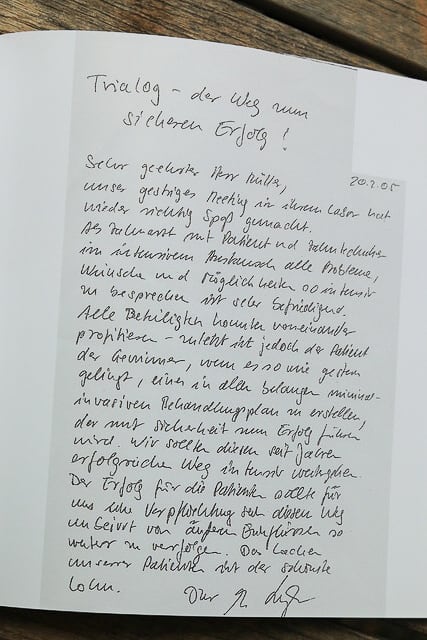 Trialog - der Weg zum
sicheren Erfolg!
20.2.05
Sehr geehrter Herr Müller,
unser gestriges Meeting in ihrem Labor hat
wieder richtig Spaß gemacht.
Als Zahnarzt mit Patient und Zahntechniker
im intensivem Austausch alle Probleme,
Wünsche und Möglichkeiten so intensiv
zu besprechen ist sehr befriedigend.
Alle Beteiligten konnten voneinander
profitieren - zuletzt ist jedoch der Patient
der Gewinner, wenn es so wie gestern
gelingt, einen in allen belangen minimal-
invasiven Behandlungsplan zu erstellen,
der mit Sicherheit zum Erfolg führen
wird. Wir sollten diesen seit Jahren
erfolgreichen Weg intensiv weitergehen.
Der Erfolg für die Patienten sollte für
uns eine Verpflichtung sein diesen Weg
unbeirrt von äußeren Einflüssen so
weiter zu verfolgen. Das Lachen
unserer Patienten ist der schönste
Lohn.